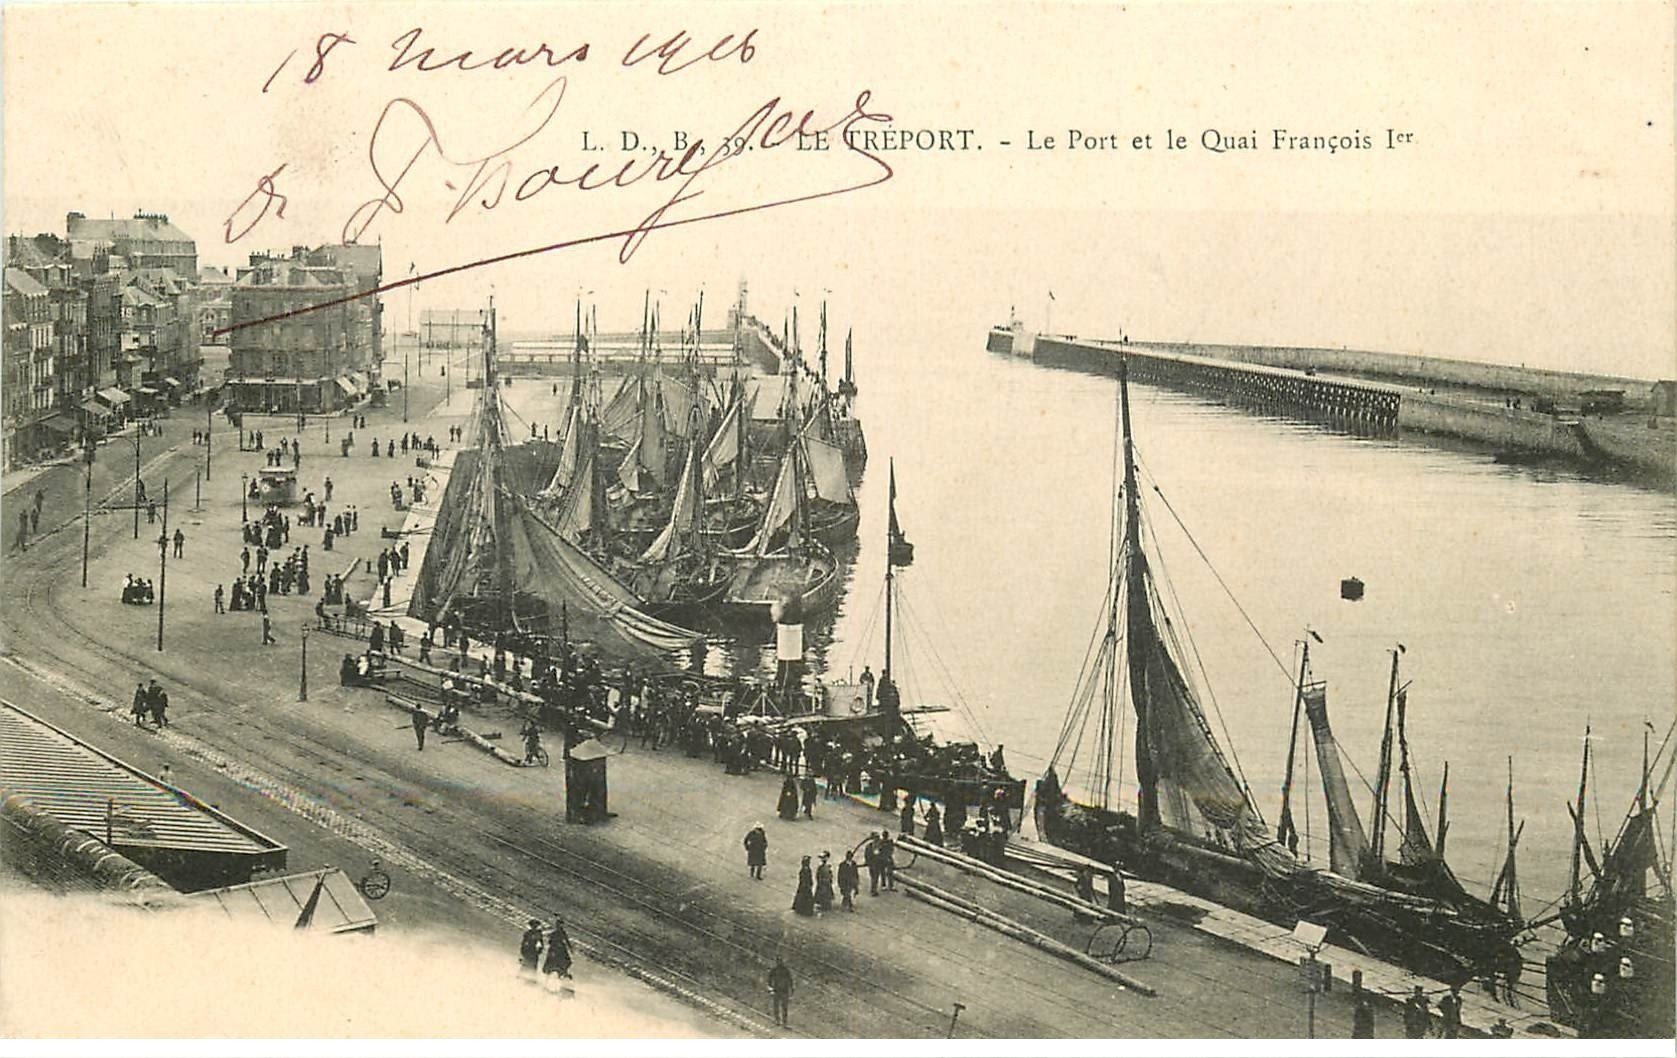 18 mars 1916
L. D., B., 39. - LE TRÉPORT. - Le Port et le Quai François Ier
Dr